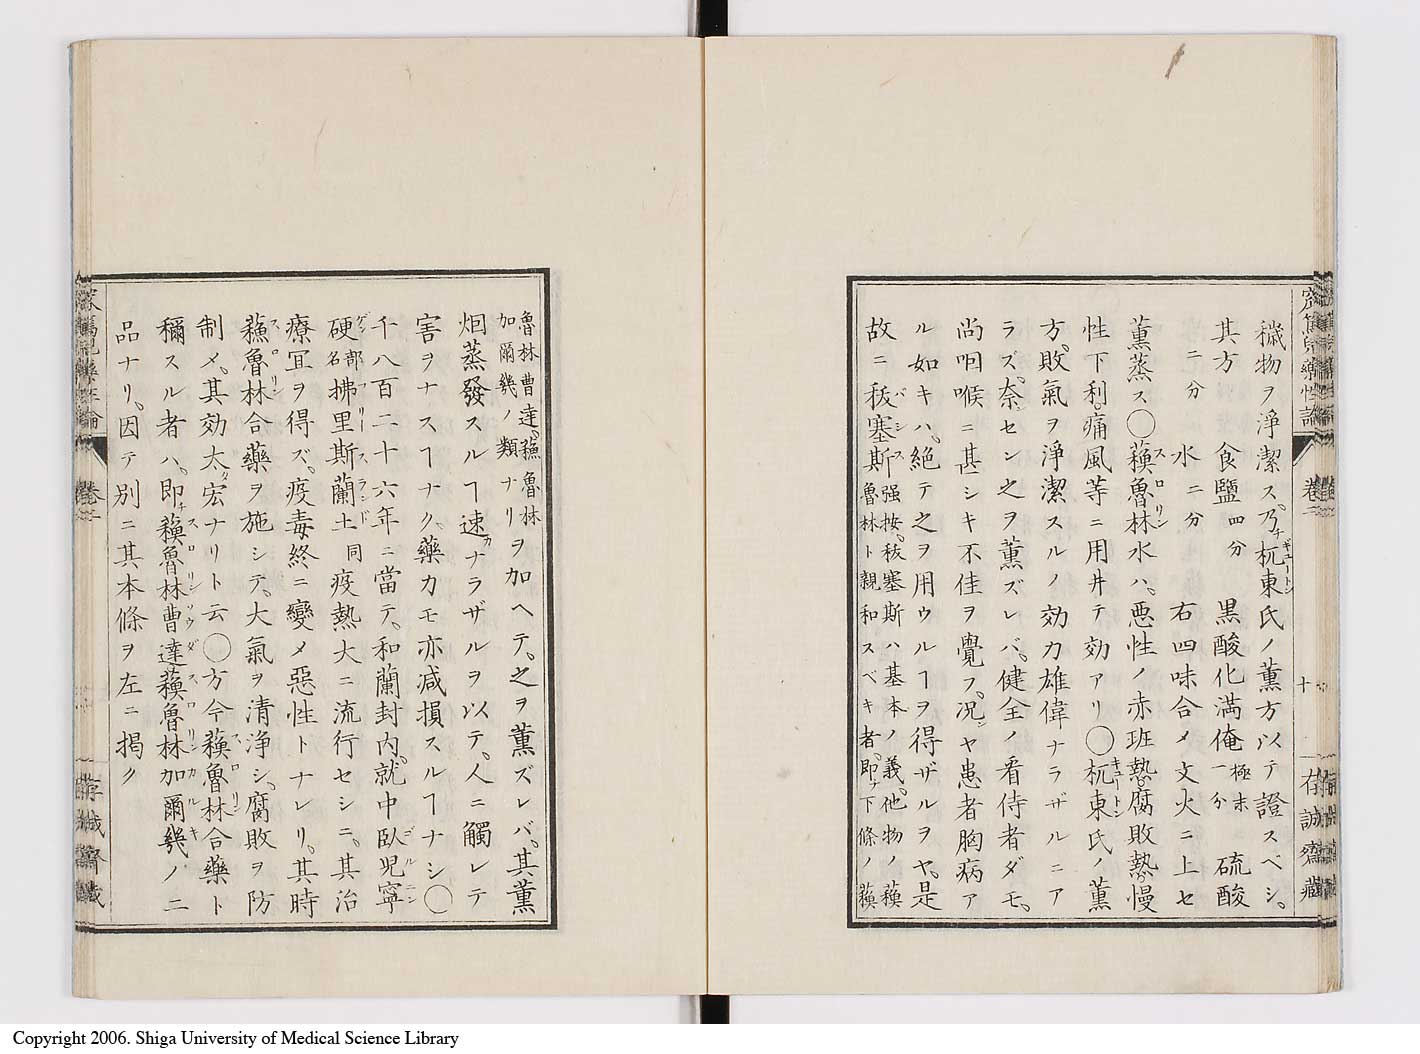 穢物ヲ淨潔ス。乃チ杬東氏ノ薫方以テ證スベシ。
其方 食鹽四分 黒酸化満俺極末一分 硫酸
二分 水二分 右四味合メ文火ニ上セ
薫蒸ス◯蘓魯林水ハ。悪性ノ赤班𤍠腐敗熱慢
性下利。痛風等ニ用井テ効アリ◯杬東氏ノ薫
方。敗氣ヲ淨潔スルノ効力雄偉ナラザルニア
ラズ。奈セン之ヲ薫ズレバ。健全ノ看侍者ダモ。
尚咽喉ニ甚シキ不佳ヲ覺フ。况ヤ患者胸病ア
ル如キハ。絶テ之ヲ用ウルヿヲ得ザルヲヤ。是
故ニ秡塞斯强按。秡塞斯ハ基本ノ義。他物ノ蘓
魯林ト親和スベキ者。即チ下條ノ蘓
魯林曹達。蘓魯林
加爾幾ノ類ナリヲ加ヘテ。之ヲ薫ズレバ。其薫
烟蒸發スルヿ速カナラザルヲ以テ。人ニ觸レテ
害ヲナスヿナク。藥力モ亦减損スルヿナシ◯
千八百二十六年ニ當テ。和蘭封内。就中臥児寧
硬郡名拂里斯蘭土同疫熱大ニ流行セシニ。其治
療冝ヲ得ズ。疫毒終ニ變メ惡性トナレリ。其時
蘓魯林合藥ヲ施シテ。大氣ヲ清浄シ。腐敗ヲ防
制メ。其効大宏ナリト云◯方今蘓魯林合藥ト
稱スル者ハ。即チ蘓魯林曹達蘓魯林加爾幾ノ二
品ナリ。因テ別ニ其本條ヲ左ニ掲ク
卷二
十
存誠齋藏
Copyright 2006. Shiga University of Medical Science Library